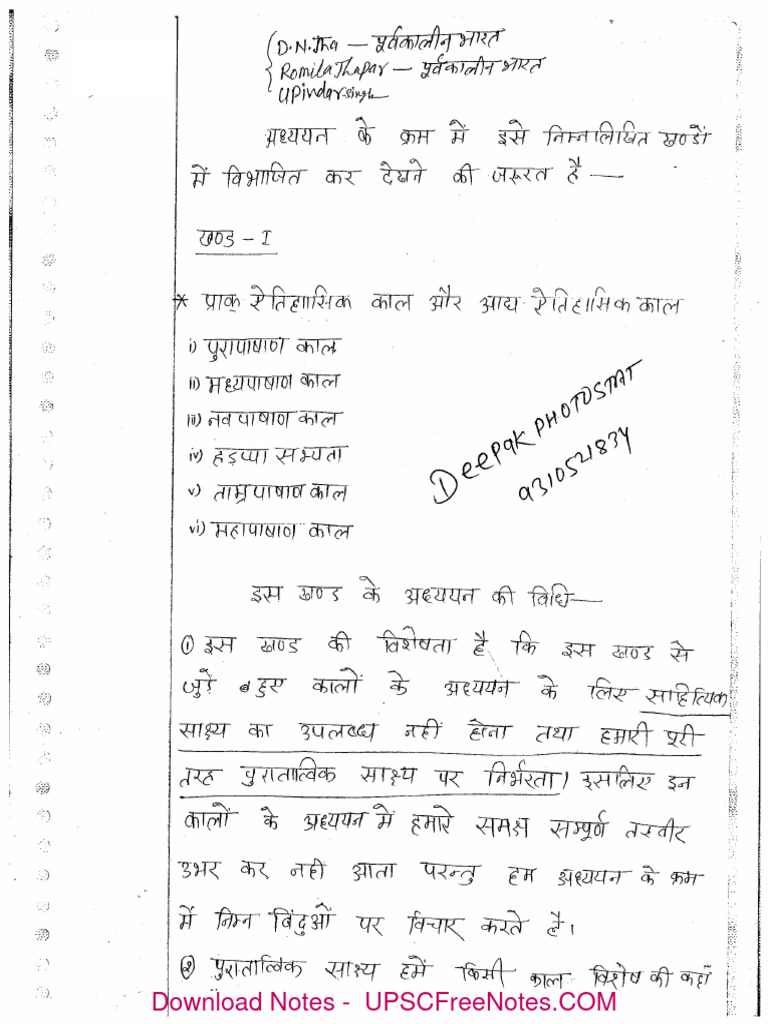 D.N.Jha — पूर्वकालीन भारत
Romila Thapar — पूर्वकालीन भारत
Upindar Singh
अध्ययन के क्रम में इसे निम्नलिखित खण्डों
में विभाजित कर देखने की जरूरत है —
खण्ड - I
* प्राक् ऐतिहासिक काल और आद्य ऐतिहासिक काल
i) पुरापाषाण काल
ii) मध्यपाषाण काल
iii) नवपाषाण काल
iv) हड़प्पा सभ्यता
v) ताम्रपाषाण काल
vi) महापाषाण काल
Deepak PHOTOSTAT
9310521834
इस खण्ड के अध्ययन की विधि —
① इस खण्ड की विशेषता है कि इस खण्ड से
जुड़े हुए कालों के अध्ययन के लिए साहित्यिक
साक्ष्य का उपलब्ध नहीं होना तथा हमारी पूरी
तरह पुरातात्विक साक्ष्य पर निर्भरता। इसलिए इन
कालों के अध्ययन में हमारे समक्ष सम्पूर्ण तस्वीर
उभर कर नहीं आता परन्तु हम अध्ययन के क्रम
में निम्न बिंदुओं पर विचार करते है।
② पुरातात्विक साक्ष्य हमें किसी काल विशेष की कहाँ
Download Notes - UPSCFreeNotes.COM